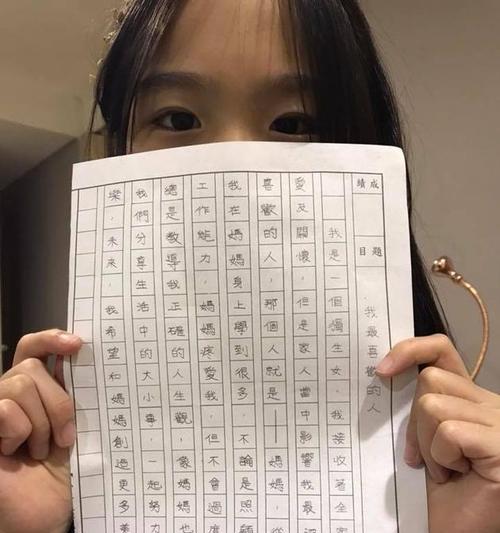 成績
題目
我最喜歡的人
我是一個獨生女,我接收著全家
愛及關懷,但是家人當中影響我最深
喜歡的人,那個人就是——媽媽,從
我在媽媽身上學到很多,不論是照顧
工作能力,媽媽疼愛我,但不會過度
總是教導我正確的人生觀,像媽媽也
我們分享生活中的大小事,一起努力
樂,未來,我希望和媽媽創造更多美